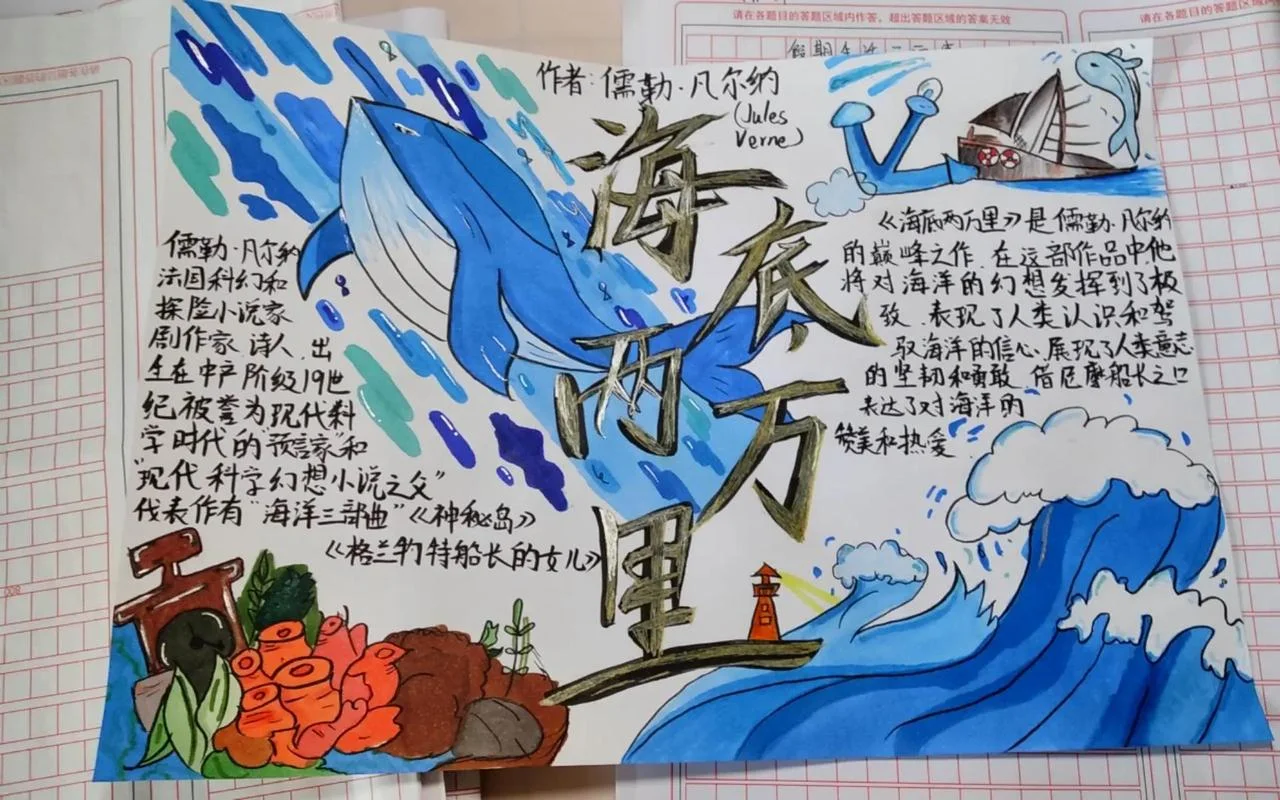 请在各题目的答题区域内作答，超出答题区域的答案无效
作者：儒勒·凡尔纳
(Jules
Verne)
海
底
两
万
里
儒勒·凡尔纳
法国科幻和
探险小说家
剧作家 诗人 出
生在中产阶级19世
纪被誉为现代科
学时代的"预言家"和
"现代科学幻想小说之父"
代表作有"海洋三部曲"《神秘岛》
《格兰特船长的女儿》
《海底两万里》是儒勒·凡尔纳
的巅峰之作 在这部作品中他
将对海洋的幻想发挥到了极
致 表现了人类认识和驾
驭海洋的信心 展现了人类意志
的坚韧和勇敢 借尼摩船长之口
表达了对海洋的
赞美和热爱